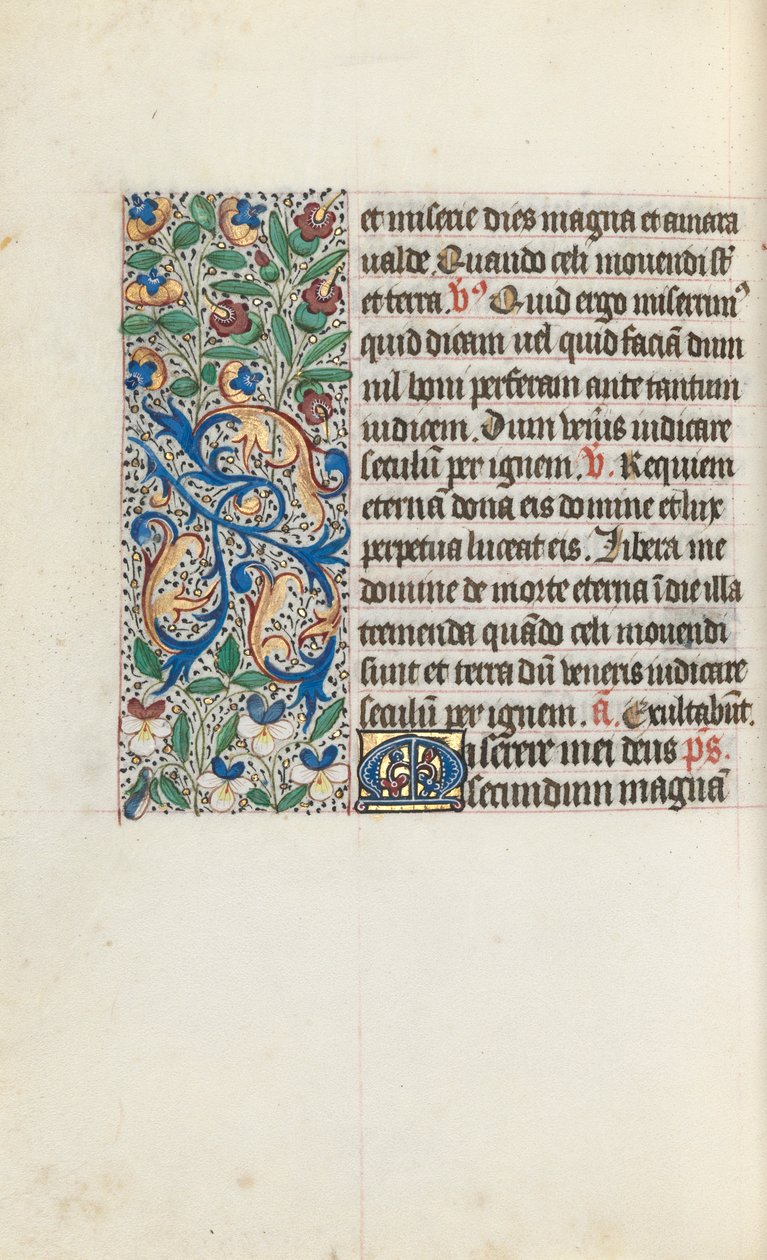 et miserie dies magna et amara
ualde. Quando celi mouendi sт̄
et terra. v̄9 Quid ergo miserrim9
quid dicam uel quid faciā dum
nil boni perferam ante tantum
iudicem. Dum ven̄is iudicare
seculū per ignem. v̄. Requiem
eternā dona eis domine et lux
perpetua luceat eis. Libera me
domine de morte eterna ī die illa
tremenda quādo celi mouendi
sunt et terra dū veneris iudicare
seculū per ignem. ā. Exultabūt.
Miserere mei deus p̄s.
secundum magnā